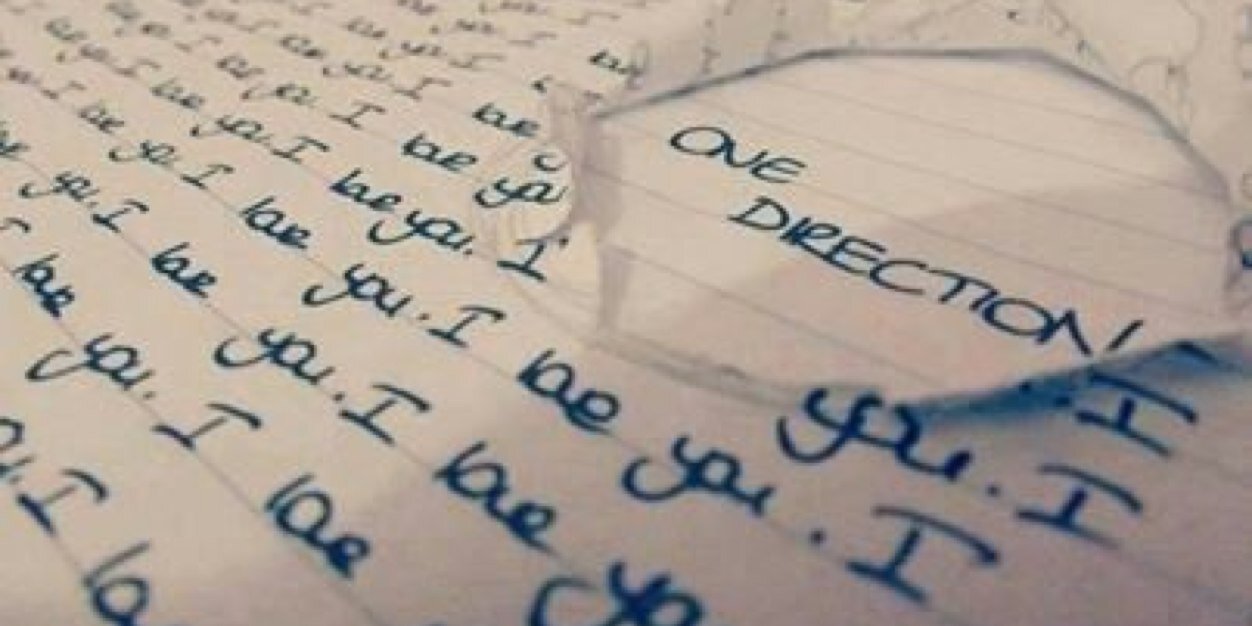 love you. I love
love you. I love you. I love y
love you. I love you. I love you
ONE
DIRECTION!
. I
you. I love you. I love you. I
you. I
you. I love you. I love you. I love you. I
love you. I love you. I love yo
I love you. I love
u. I lo